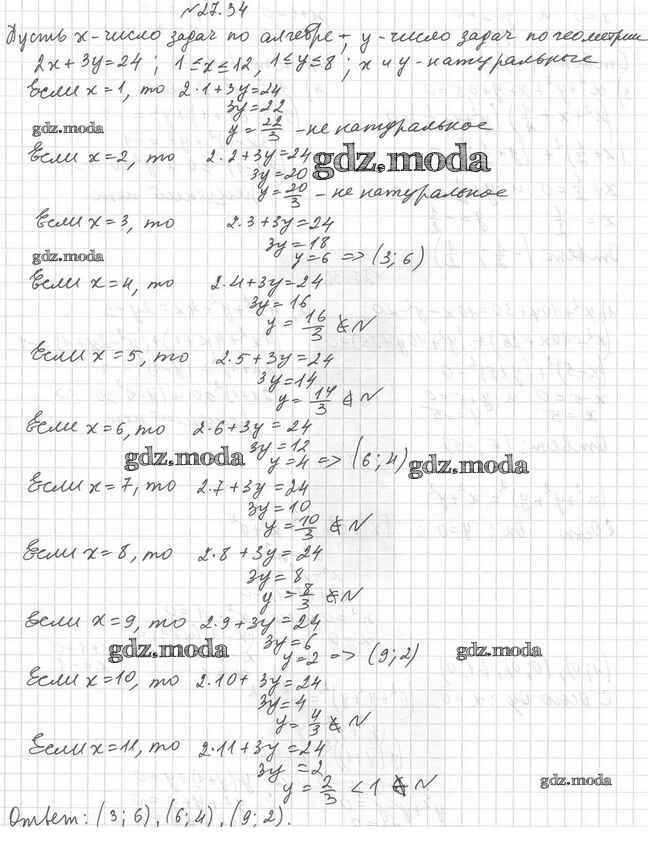 №27.34
Пусть x-число задач по алгебре, y-число задач по геометрии
2x+3y=24; 1≤x≤12, 1≤y≤8; x и y-натуральные
Если x=1, то 2·1+3y=24
3y=22
gdz.moda
y=22/3 -не натуральное
Если x=2, то 2·2+3y=24
gdz.moda
3y=20
y=20/3 -не натуральное
Если x=3, то 2·3+3y=24
3y=18
gdz.moda
y=6 => (3;6)
Если x=4, то 2·4+3y=24
3y=16
y=16/3 ∉ N
Если x=5, то 2·5+3y=24
3y=14
y=14/3 ∉ N
Если x=6, то 2·6+3y=24
3y=12
gdz.moda
y=4 => (6;4)
gdz.moda
Если x=7, то 2·7+3y=24
3y=10
y=10/3 ∉ N
Если x=8, то 2·8+3y=24
3y=8
y=8/3 ∉ N
Если x=9, то 2·9+3y=24
3y=6
gdz.moda
y=2 => (9;2)
gdz.moda
Если x=10, то 2·10+3y=24
3y=4
y=4/3 ∉ N
Если x=11, то 2·11+3y=24
3y=2
y=2/3 <1 ∉ N
gdz.moda
Ответ: (3;6), (6;4), (9;2).